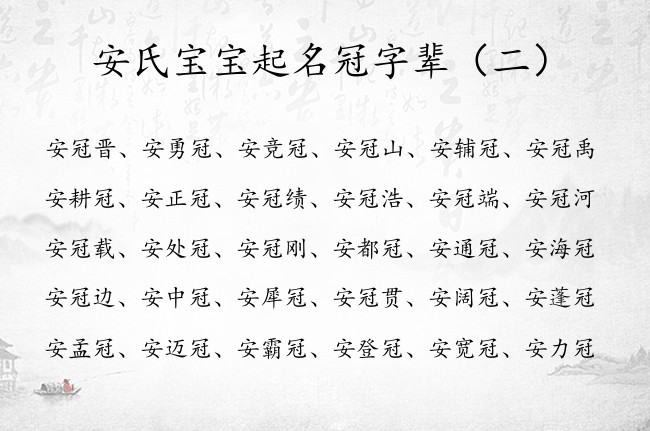 安氏宝宝起名冠字辈（二）
安冠晋、安勇冠、安竞冠、安冠山、安辅冠、安冠禹
安耕冠、安正冠、安冠绩、安冠浩、安冠端、安冠河
安冠载、安处冠、安冠刚、安都冠、安通冠、安海冠
安冠边、安中冠、安犀冠、安冠贯、安阔冠、安蓬冠
安孟冠、安迈冠、安霸冠、安登冠、安宽冠、安力冠